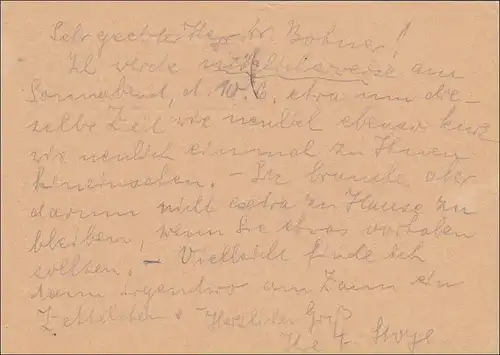 Sehr geehrter Herr Dr. Bohner!
Ich werde möglicherweise am
Sonnabend, d. 10. 6. etwa um die-
selbe Zeit wie neulich ebenso kurz
wie neulich einmal zu Ihnen
hineinsehen. – Sie brauchen aber
darum nicht extra zu Hause zu
bleiben, wenn Sie etwas vorhaben
sollten. – Vielleicht finde ich
dann irgendwo am Zaun ein
Zettelchen. Herzlichen Gruß
Ihr Stoye